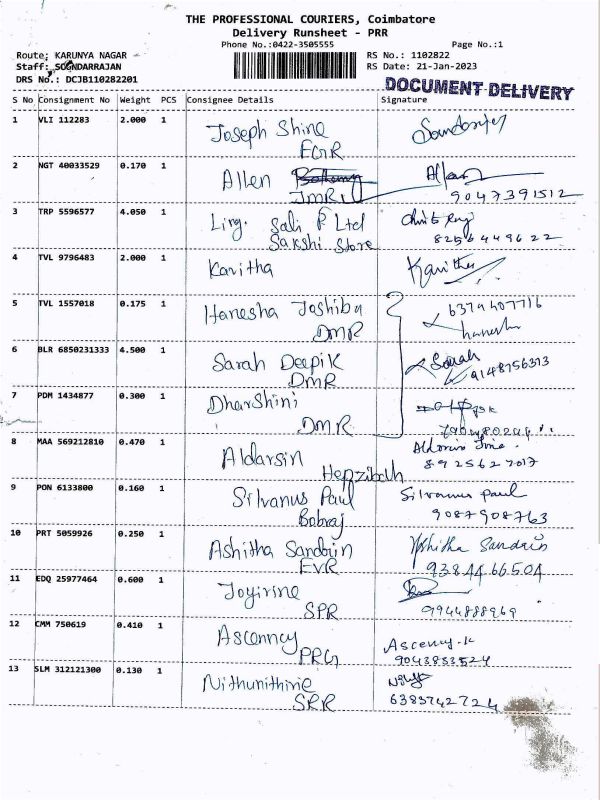 THE PROFESSIONAL COURIERS, Coimbatore
Delivery Runsheet - PRR
Phone No.:0422-3505555 Page No.:1
Route: KARUNYA NAGAR RS No.: 1102822
Staff: SOUNDARRAJAN RS Date: 21-Jan-2023
DRS No.: DCJB110282201
DOCUMENT DELIVERY
S No Consignment No Weight PCS Consignee Details Signature
1 VLI 112283 2.000 1
Joseph Shine
EGR
2 NGT 40033529 0.170 1
Allen
JMR
9047391512
3 TRP 5596577 4.050 1
Ling. Sali P Ltd
Sakshi Store
8256449622
4 TVL 9796483 2.000 1
Kavitha Kavitha
5 TVL 1557018 0.175 1
Hanesha Joshiba 6374407716
DMR hanesha
6 BLR 6850231333 4.500 1
Sarah Deepik Sarah
DMR 9148756313
7 PDM 1434877 0.300 1
Dharshini
DMR
8 MAA 569212810 0.470 1
Aldarsin
Hepzibah 8925627017
9 PON 6133800 0.160 1
Silvanus Paul Silvanus paul
Bobraj 9087908763
10 PRT 5059926 0.250 1
Ashitha Sandain
EVR 9384466504
11 EDQ 25977464 0.600 1
Joyirine
SPR 9944888969
12 CMM 750619 0.410 1
Ascenncy Ascency.K
PRG 9043853524
13 SLM 312121300 0.130 1
Nithunithine
SRR 6383742724